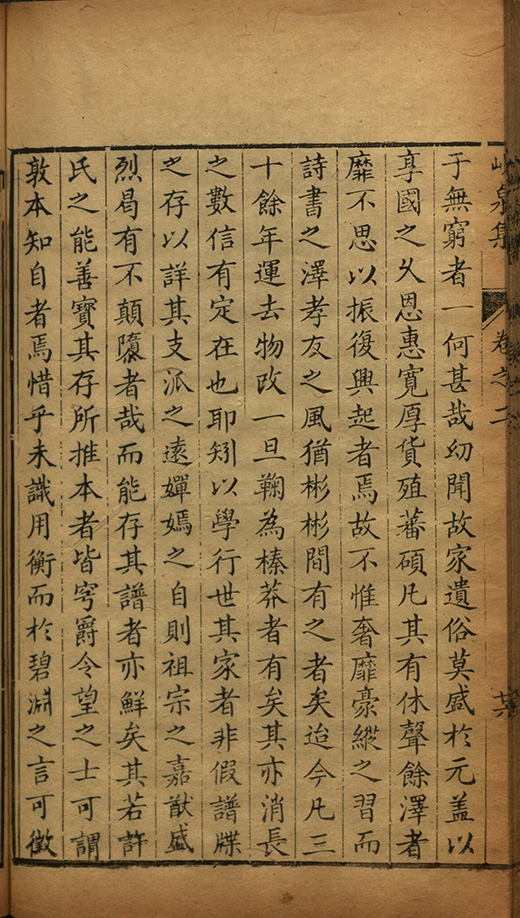 峴泉集 卷之二 十六
于無窮者一何甚哉幼聞故家遺俗莫盛於元盖以
享國之久恩惠寛厚貨殖蕃碩凡其有休聲餘澤者
靡不思以振復興起者焉故不惟奢靡豪縱之習而
詩書之澤孝友之風猶彬彬間有之者矣迨今凡三
十餘年運去物改一旦鞠為榛莽者有矣其亦消長
之數信有定在也耶矧以學行世其家者非假譜牒
之存以詳其支派之遠嬋嫣之自則祖宗之嘉猷盛
烈曷有不顛隳者哉而能存其譜者亦鮮矣其若許
氏之能善寶其存所推本者皆穹爵令望之士可謂
敦本知自者焉惜乎未識用衡而於碧淵之言可徵